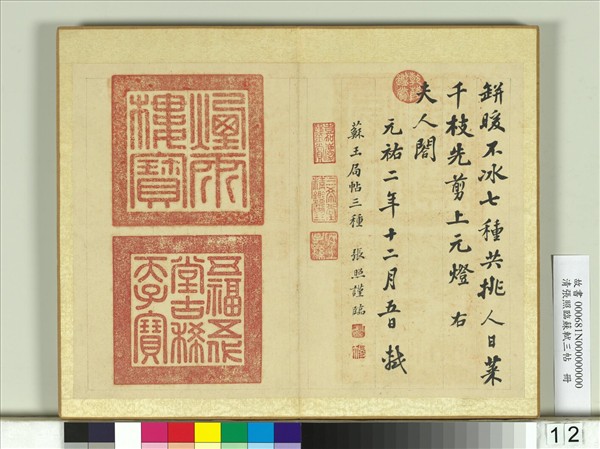 缾暖不冰七種共挑人日菜
千枝先剪上元燈 右
夫人閤
元祐二年十二月五日 軾
蘇玉局帖三種 張照謹臨
煙雨
樓寶
五福五代
堂古稀
天子寶
故書 000681N000000000
清張照臨蘇軾三帖 冊
12